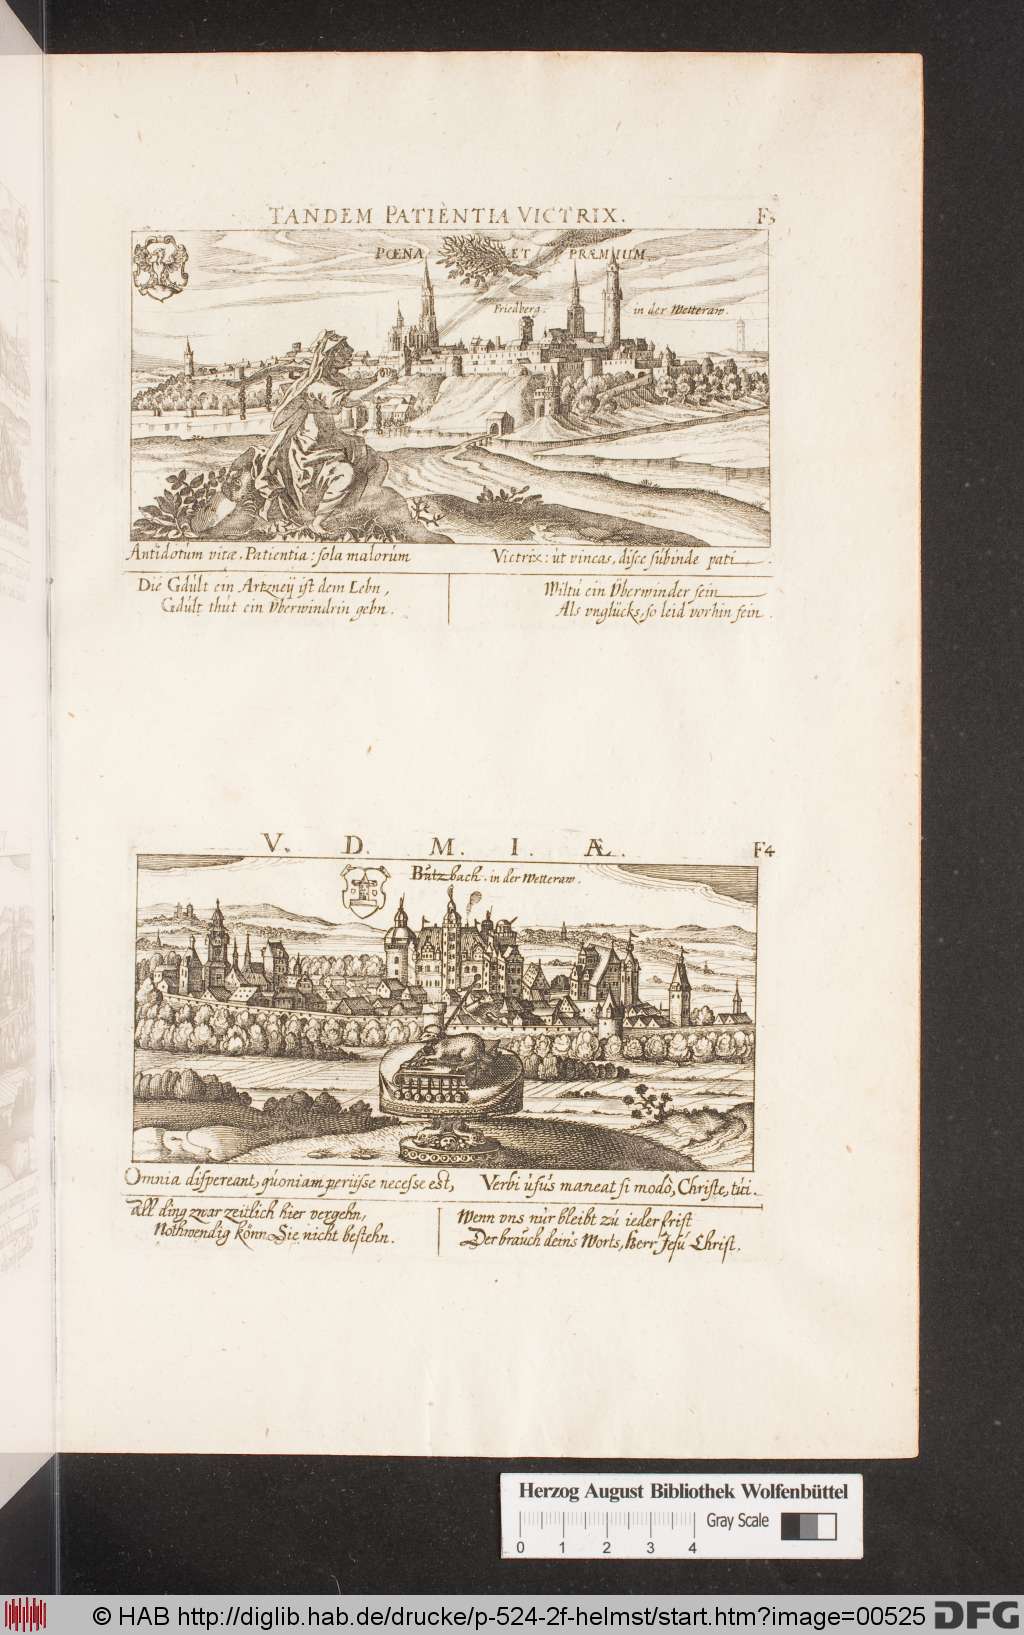 TANDEM PATIENTIA VICTRIX. F3
POENA ET PRÆMIUM.
Friedberg. in der Wetteraw.
Antidotum vitæ, Patientia: sola malorum Victrix: ut vincas, disce subinde pati.
Die Gdult ein Artzneÿ ist dem Lebn,
Gdult thut ein Vberwindrin gebn.
Wiltu ein Vberwinder sein
Als vnglücks, so leid vorhin fein.
V. D. M. I. Æ. F4
Butzbach. in der Wetteraw.
Omnia dispereant, quoniam perijsse necesse est, Verbi usus maneat si modò, Christe, tui.
All ding zwar zeitlich hier vergehn,
Nothwendig könn Sie nicht bestehn.
Wenn vns nur bleibt zu ieder frist
Der brauch deins Worts, Herr Jesu Christ.
Herzog August Bibliothek Wolfenbüttel
Gray Scale
0 1 2 3 4
© HAB http://diglib.hab.de/drucke/p-524-2f-helmst/start.htm?image=00525 DFG